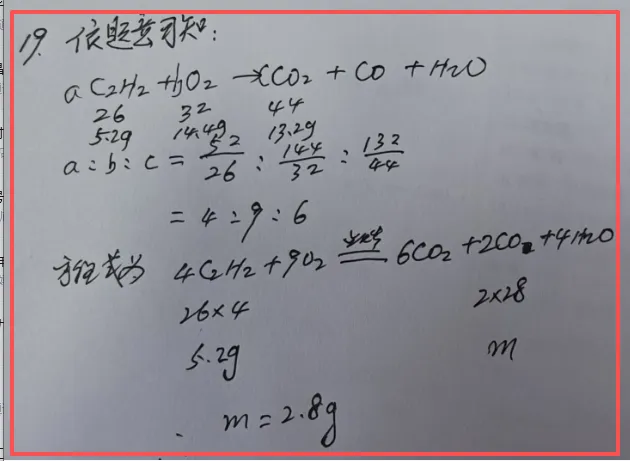 19. 依题意可知:
aC2H2 + bO2 → cCO2 + CO + H2O
26 32 44
5.2g 14.4g 13.2g
a:b:c = 52/26 : 144/32 : 132/44
= 4:9:6
方程式为 4C2H2 + 9O2 点燃 6CO2 + 2CO + 4H2O
26×4 2×28
5.2g m
m = 2.8g